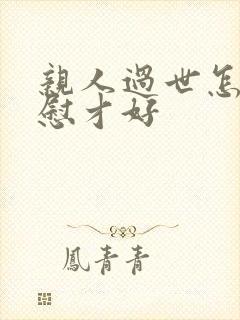 親人過世怎
慰才好
鳳青青